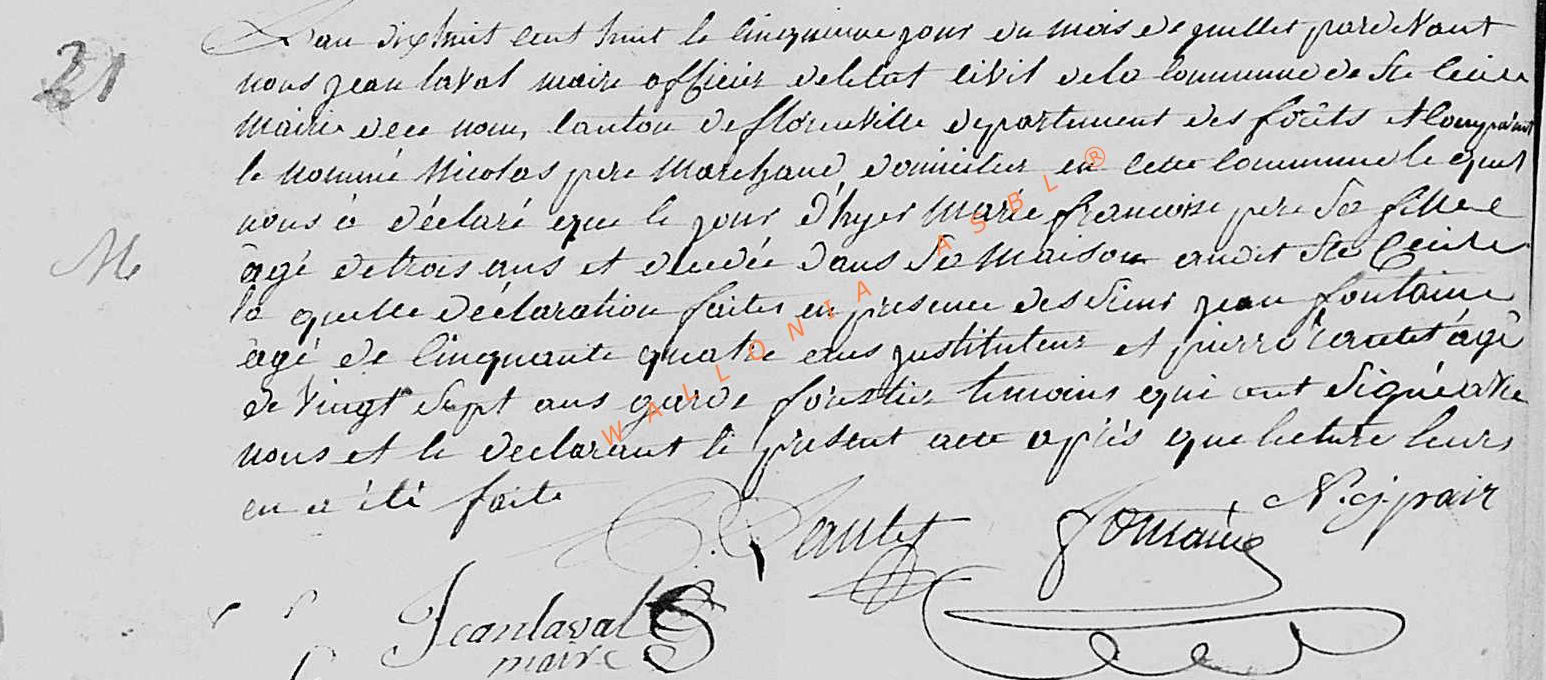 21
L'an dixhuit cent huit le cinquieme jour du mois de juillet pardevant
nous jean laval maire officier deletat civil dela commune de Ste Cecile
Mairie dece nom, canton deflorenville departement des forêts Alcomparut
le nommé Nicolas pere Marchand domicilier en cette commune le quel
nous à déclaré que le jour d'hyer Marie francoise pere Sa fille
M
âgé detrois ans et decedée dans Sa Maison audit Ste Cecile
la quelle déclaration faites en presence des Sieur jean fontaine
âgé de Cinquante quatre ans justituteur et pierre lautet âgé
de vingt Sept ans garde forestier temoins qui ont Signé avec
nous et le declarant le present acte après que lecture leurs
en a été faite
P. lautet fontaine N. j. pair
Jean laval
maire
WALLONIA ASBL ®